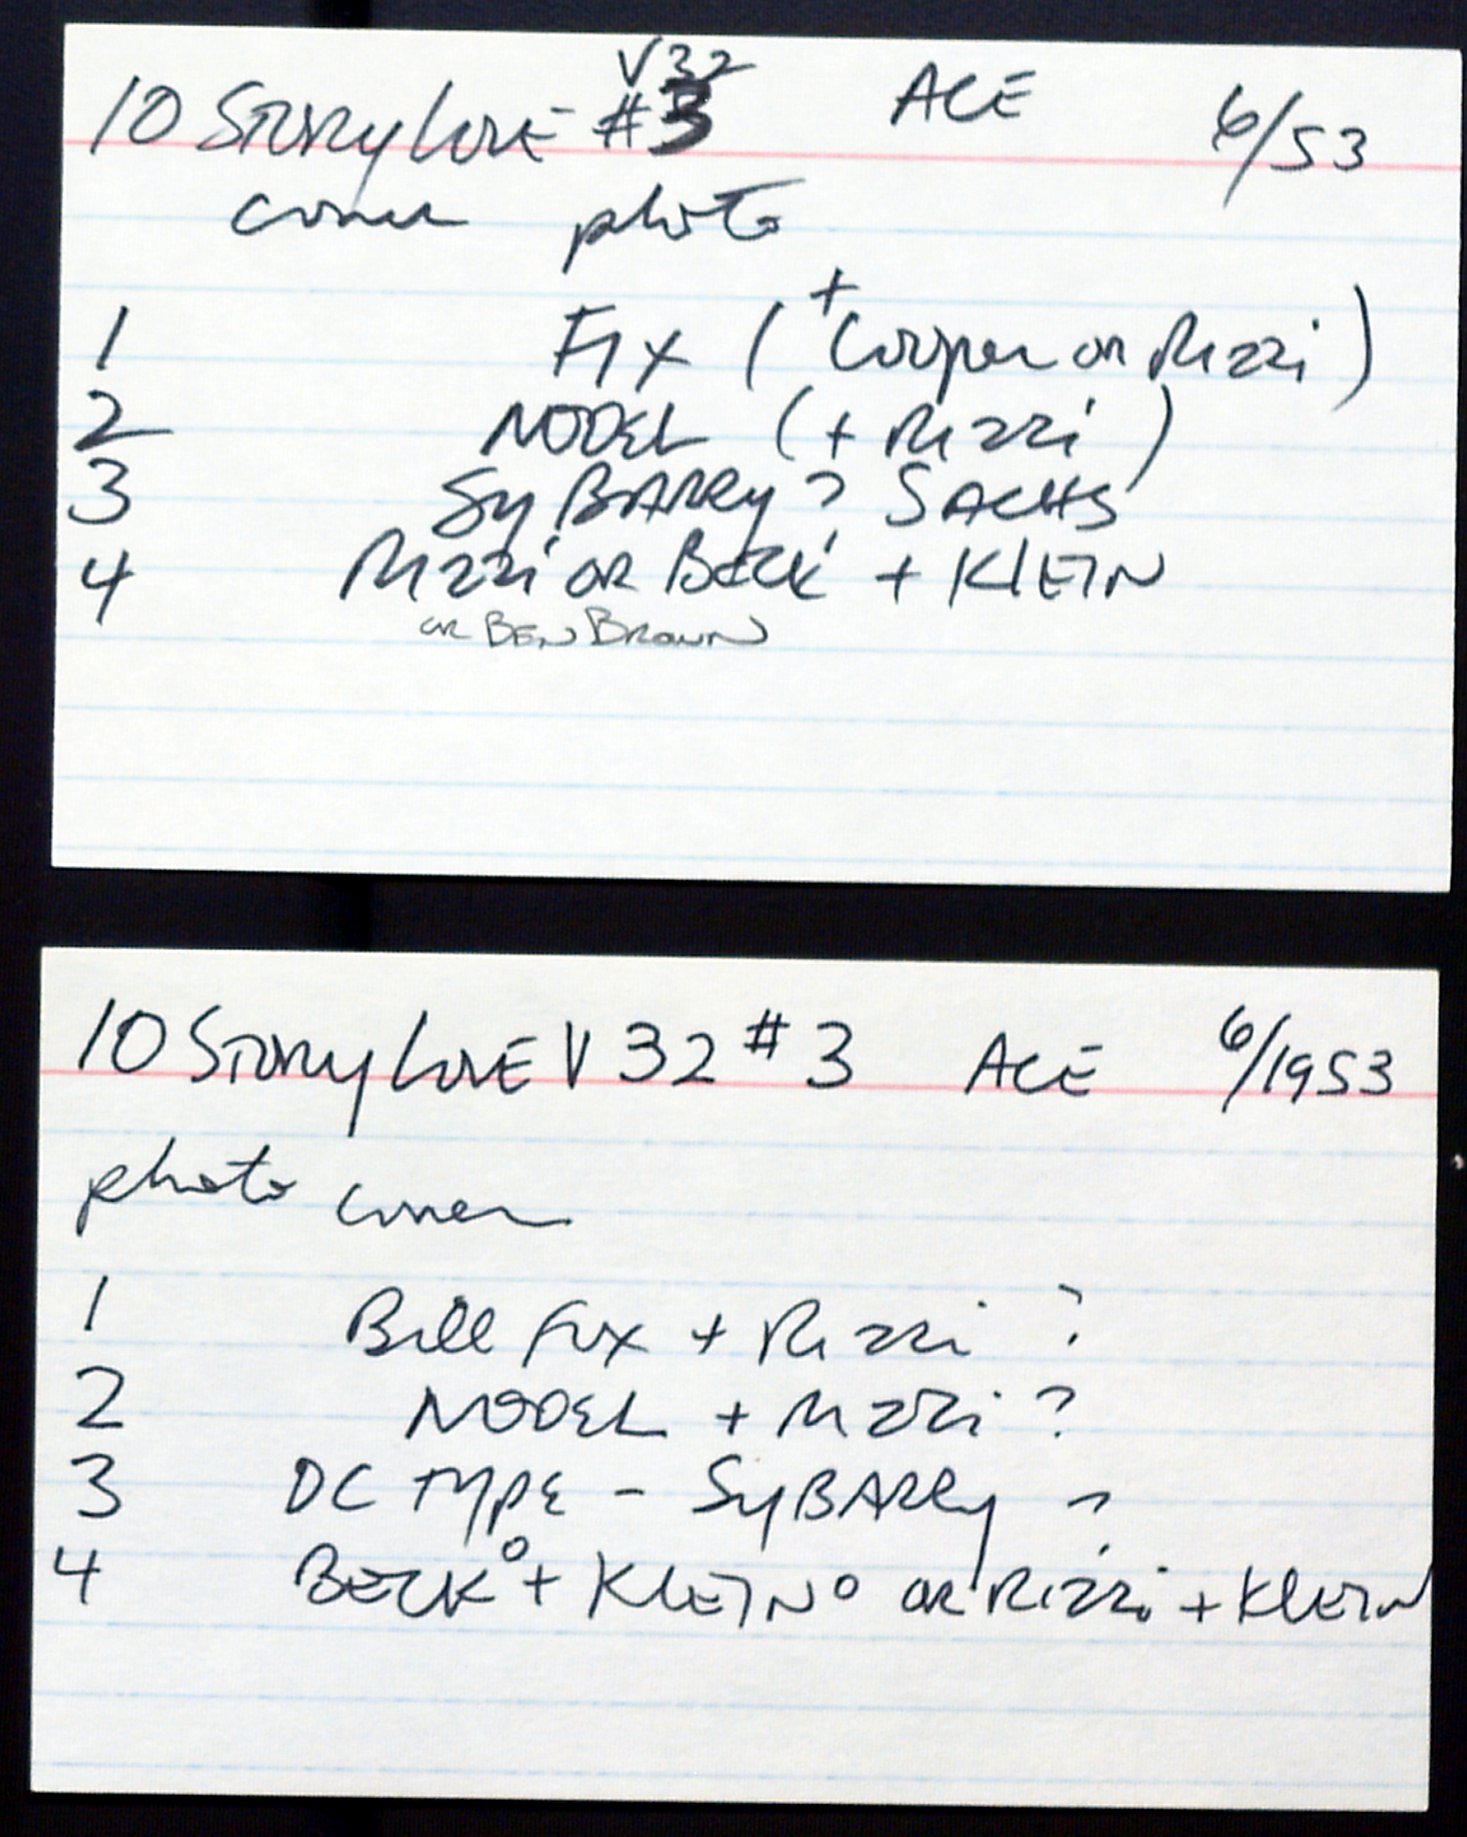 10 Story Love V32 #3 ACE 6/53
cover photo
1 Fix (+ Cooper or Rizzi)
2 NODEL (+ Rizzi)
3 Sy BARRy? SACHS
4 Rizzi or Beck + KLEIN
or BEN BROWN
10 Story LOVE V32 #3 ACE 6/1953
photo cover
1 Bill Fox + Rizzi ?
2 NODEL + Rizzi ?
3 DC TYPE - Sy BARRy ?
4 BECK° + KLEIN° OR Rizzi + KLEIN